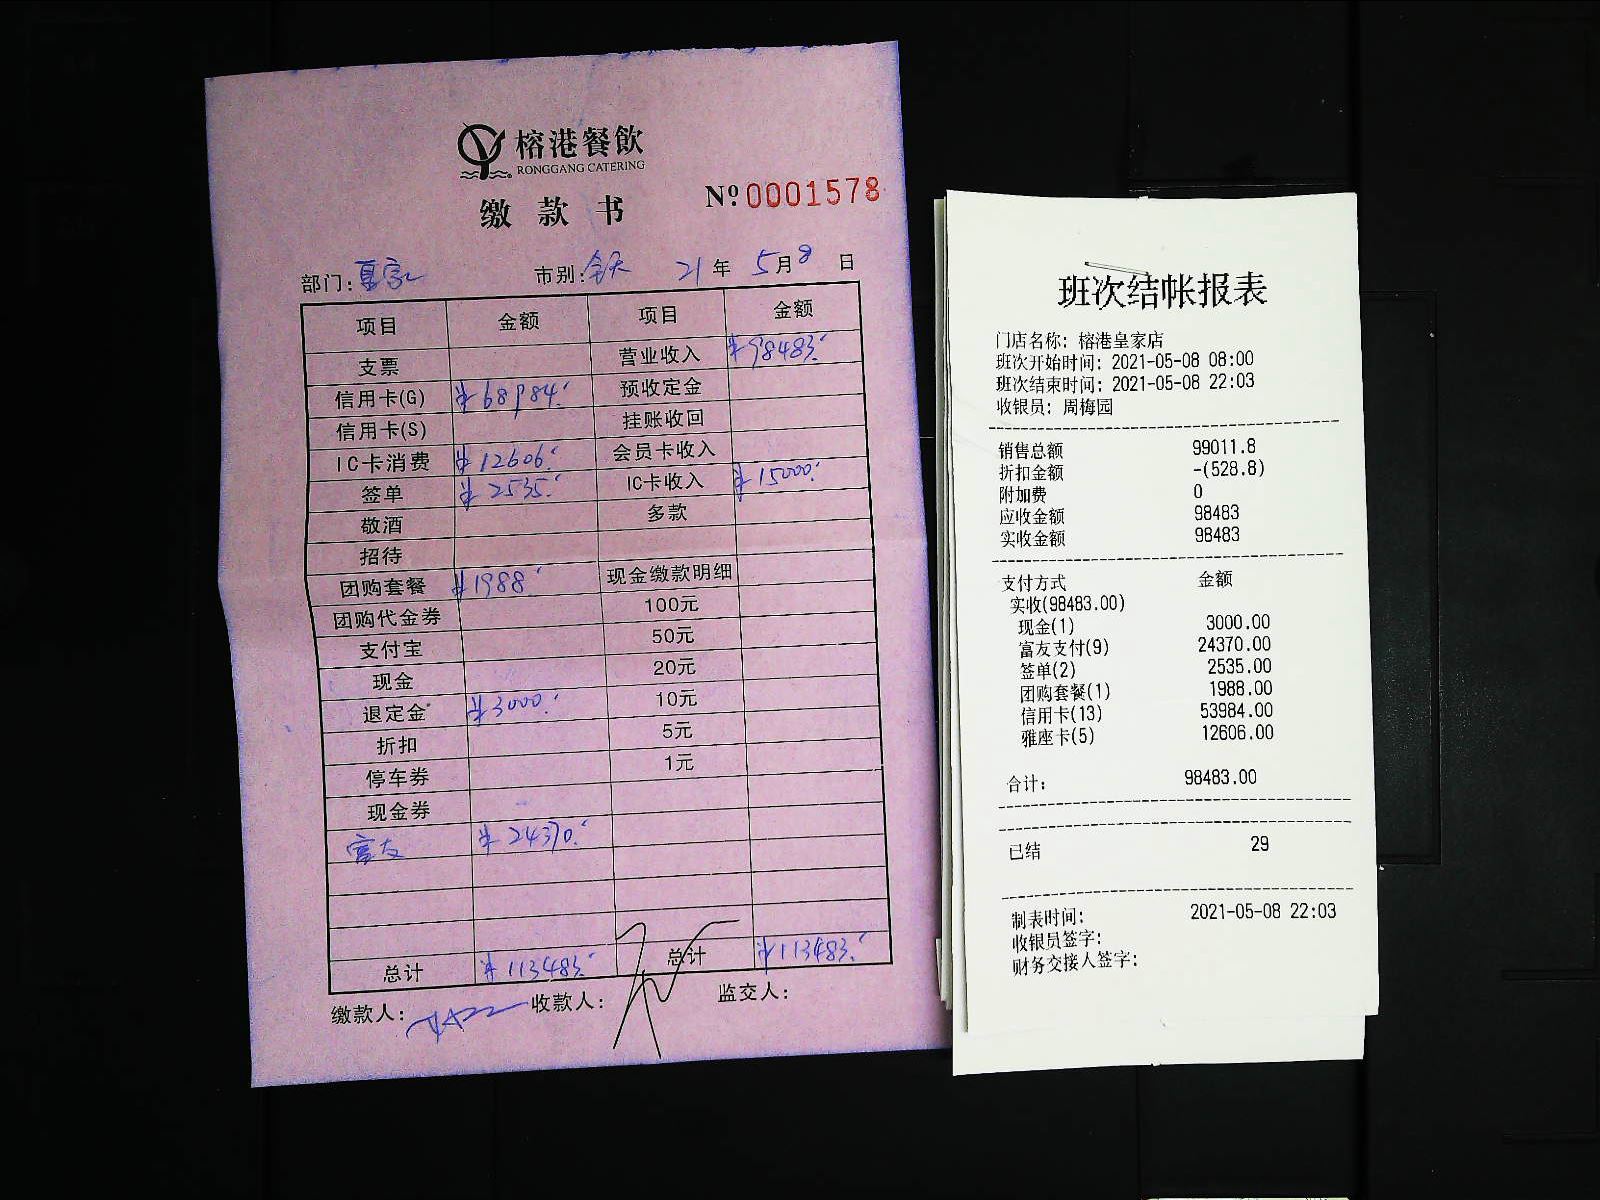 榕港餐飲
RONGGANG CATERING
缴款书
№ 0001578
部门: 皇家 市别: 全天 21年 5月 8日
项目 金额 项目 金额
支票 营业收入 ¥98483.
信用卡(G) ¥68984. 预收定金
信用卡(S) 挂账收回
IC卡消费 ¥12606. 会员卡收入
签单 ¥2535. IC卡收入 ¥15000.
敬酒 多款
招待
团购套餐 ¥1988. 现金缴款明细
团购代金券 100元
支付宝 50元
现金 20元
退定金 ¥3000. 10元
折扣 5元
停车券 1元
现金券
富友 ¥24370.
总计 ¥113483. 总计 ¥113483.
缴款人: 收款人: 监交人:
班次结帐报表
门店名称: 榕港皇家店
班次开始时间: 2021-05-08 08:00
班次结束时间: 2021-05-08 22:03
收银员: 周梅园
销售总额 99011.8
折扣金额 -(528.8)
附加费 0
应收金额 98483
实收金额 98483
支付方式 金额
实收(98483.00)
现金(1) 3000.00
富友支付(9) 24370.00
签单(2) 2535.00
团购套餐(1) 1988.00
信用卡(13) 53984.00
雅座卡(5) 12606.00
合计: 98483.00
已结 29
制表时间: 2021-05-08 22:03
收银员签字:
财务交接人签字: